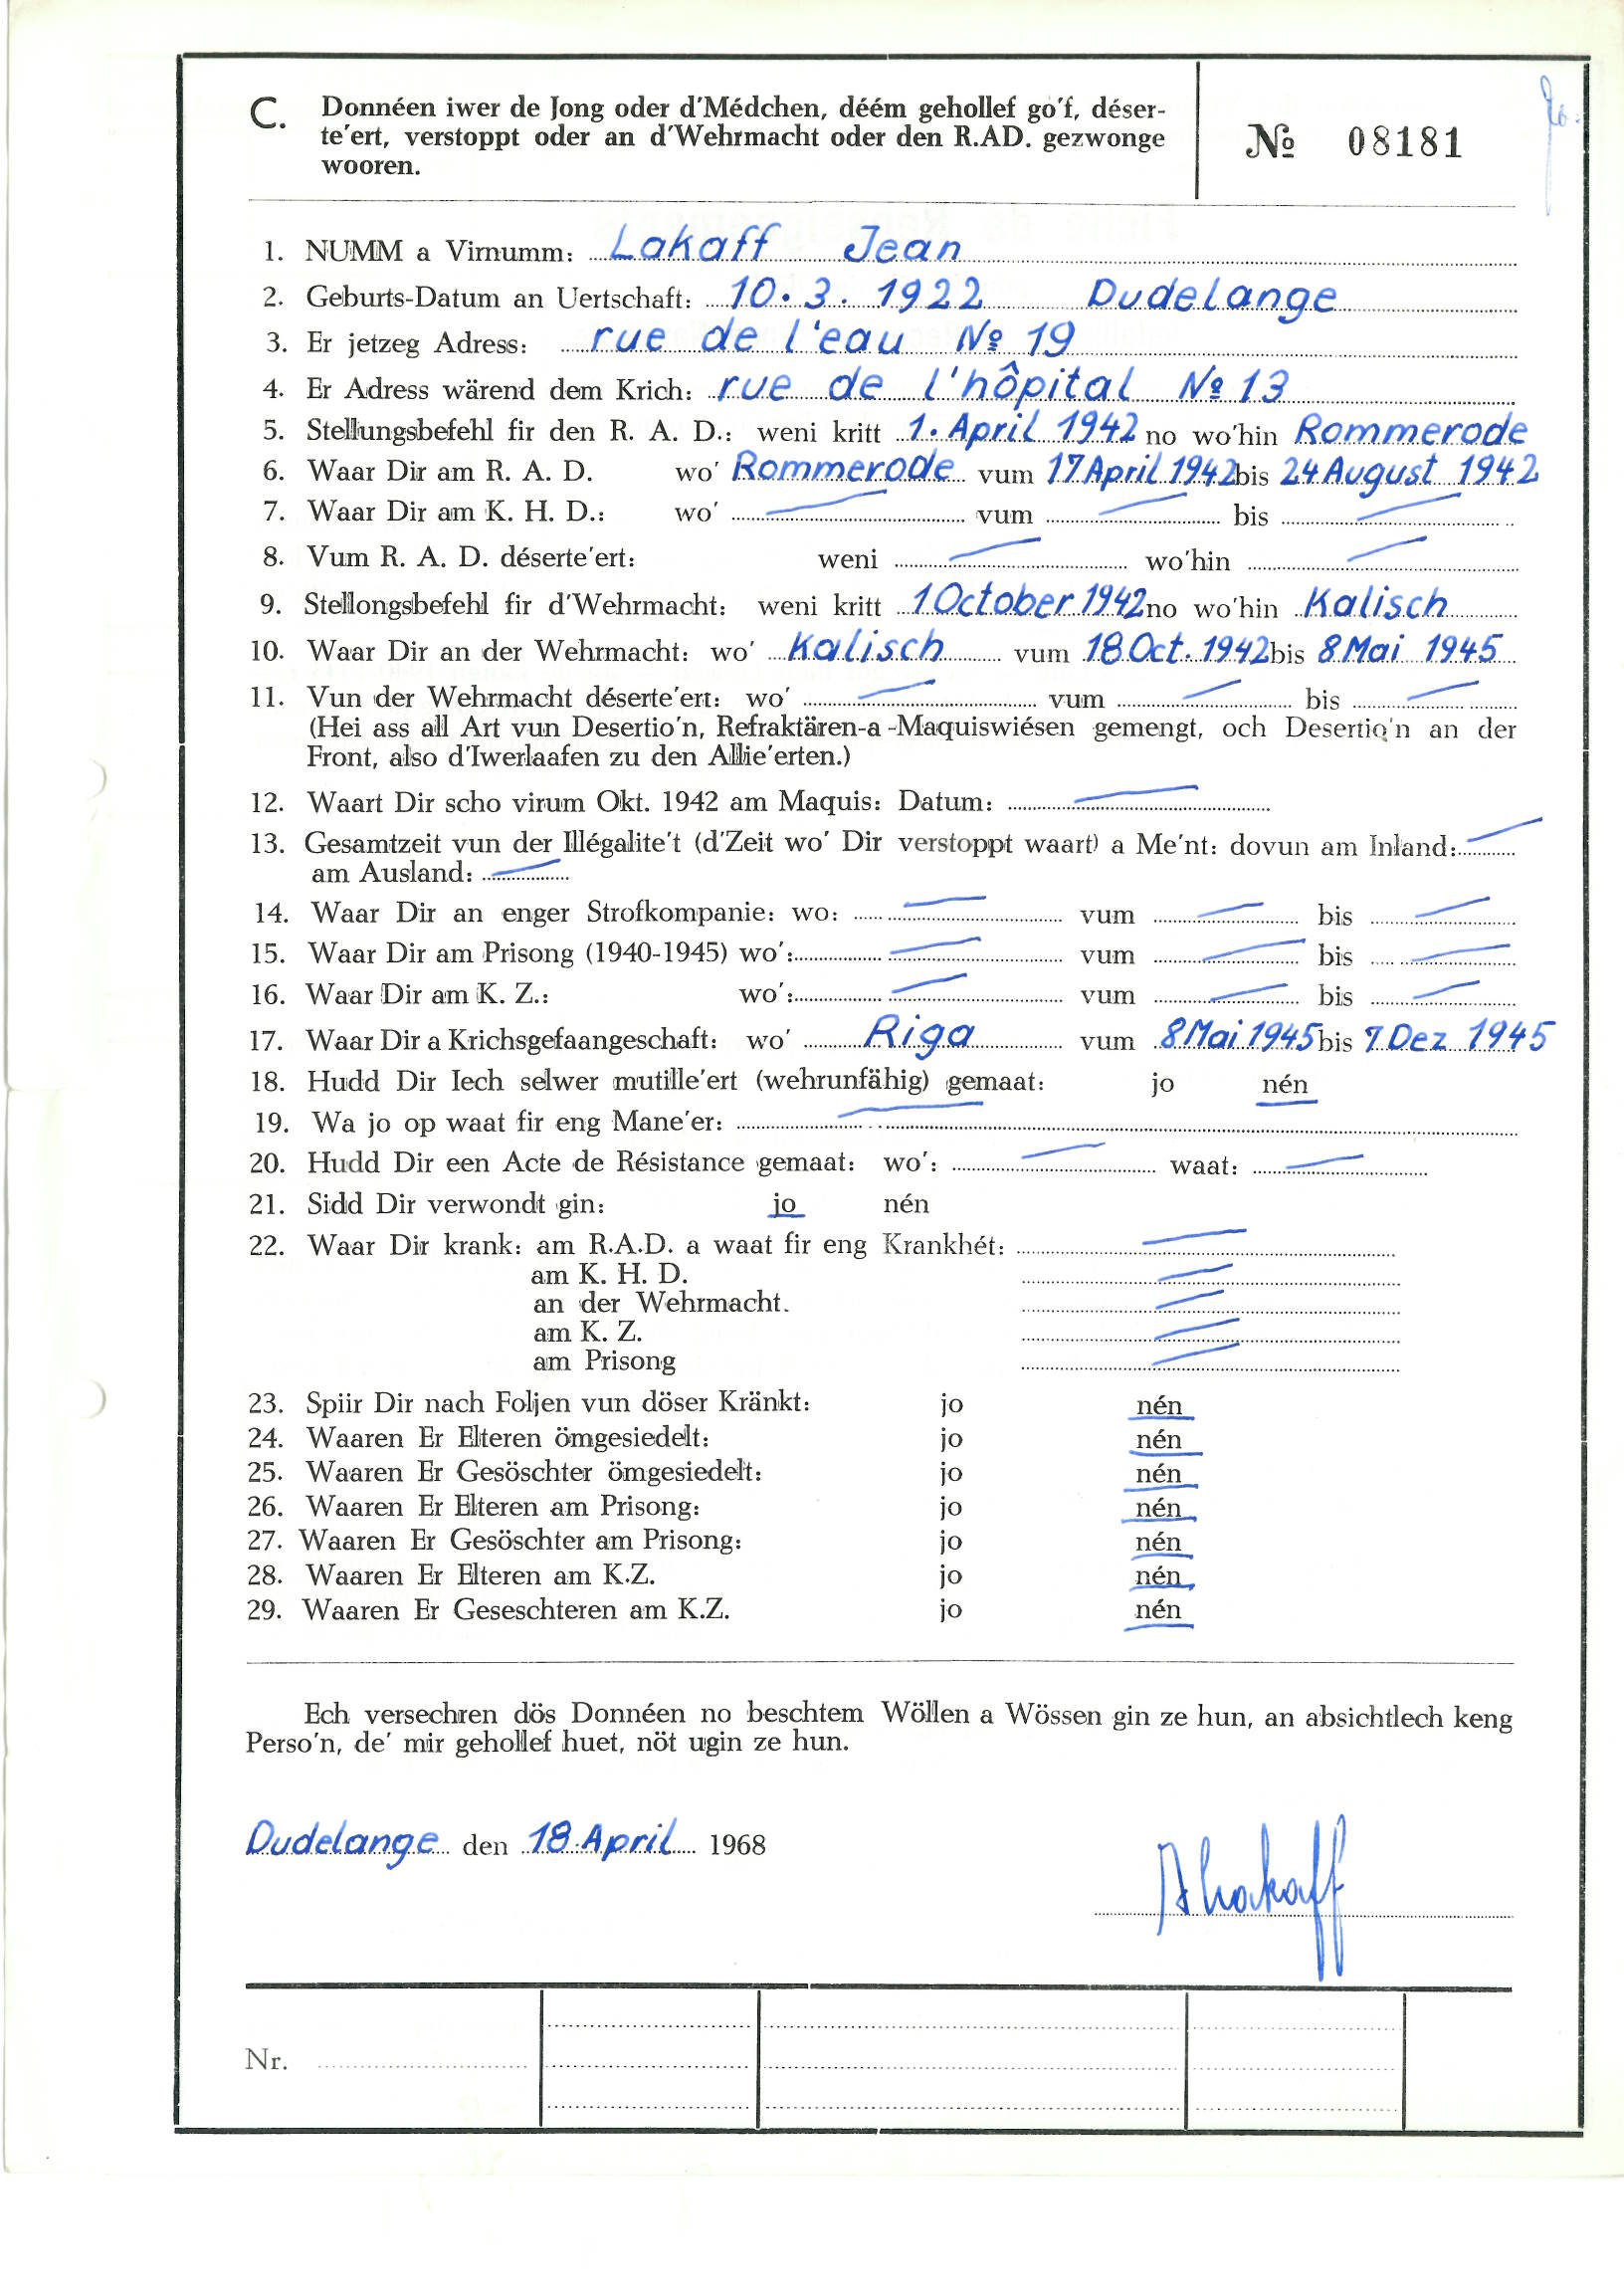 C. Donnéen iwer de Jong oder d'Médchen, déém gehollef go'f, déser-
te'ert, verstoppt oder an d'Wehrmacht oder den R.AD. gezwonge
wooren.
№ 08181
1. NUMM a Virnumm: Lakaff Jean
2. Geburts-Datum an Uertschaft: 10.3.1922 Dudelange
3. Er jetzeg Adress: rue de l'eau № 19
4. Er Adress wärend dem Krich: rue de l'hôpital № 13
5. Stellungsbefehl fir den R. A. D.: weni kritt 1. April 1942 no wo'hin Rommerode
6. Waar Dir am R. A. D. wo' Rommerode vum 17 April 1942 bis 24 August 1942
7. Waar Dir am K. H. D.: wo' — vum — bis —
8. Vum R. A. D. déserte'ert: weni — wo'hin —
9. Stellongsbefehl fir d'Wehrmacht: weni kritt 1 October 1942 no wo'hin Kalisch
10. Waar Dir an der Wehrmacht: wo' Kalisch vum 18 Oct. 1942 bis 8 Mai 1945
11. Vun der Wehrmacht déserte'ert: wo' — vum — bis —
(Hei ass all Art vun Desertio'n, Refraktären-a -Maquiswiésen gemengt, och Desertio'n an der
Front, also d'Iwerlaafen zu den Allie'erten.)
12. Waart Dir scho virum Okt. 1942 am Maquis: Datum: —
13. Gesamtzeit vun der Illégalite't (d'Zeit wo' Dir verstoppt waart) a Me'nt: dovun am Inland: —
am Ausland: —
14. Waar Dir an enger Strofkompanie: wo: — vum — bis —
15. Waar Dir am Prisong (1940-1945) wo': — vum — bis —
16. Waar Dir am K. Z.: wo': — vum — bis —
17. Waar Dir a Krichsgefaangeschaft: wo' Riga vum 8 Mai 1945 bis 7 Dez 1945
18. Hudd Dir Iech selwer mutille'ert (wehrunfähig) gemaat: jo nén
19. Wa jo op waat fir eng Mane'er: —
20. Hudd Dir een Acte de Résistance gemaat: wo': — waat: —
21. Sidd Dir verwondt gin: jo nén
22. Waar Dir krank: am R.A.D. a waat fir eng Krankhét: —
am K. H. D. —
an der Wehrmacht. —
am K. Z. —
am Prisong —
23. Spiir Dir nach Foljen vun döser Kränkt: jo nén
24. Waaren Er Elteren ömgesiedelt: jo nén
25. Waaren Er Gesöschter ömgesiedelt: jo nén
26. Waaren Er Elteren am Prisong: jo nén
27. Waaren Er Gesöschter am Prisong: jo nén
28. Waaren Er Elteren am K.Z. jo nén
29. Waaren Er Geseschteren am K.Z. jo nén
Ech versechren dös Donnéen no beschtem Wöllen a Wössen gin ze hun, an absichtlech keng
Perso'n, de' mir gehollef huet, nöt ugin ze hun.
Dudelange den 18. April 1968
Lakaff
Nr.